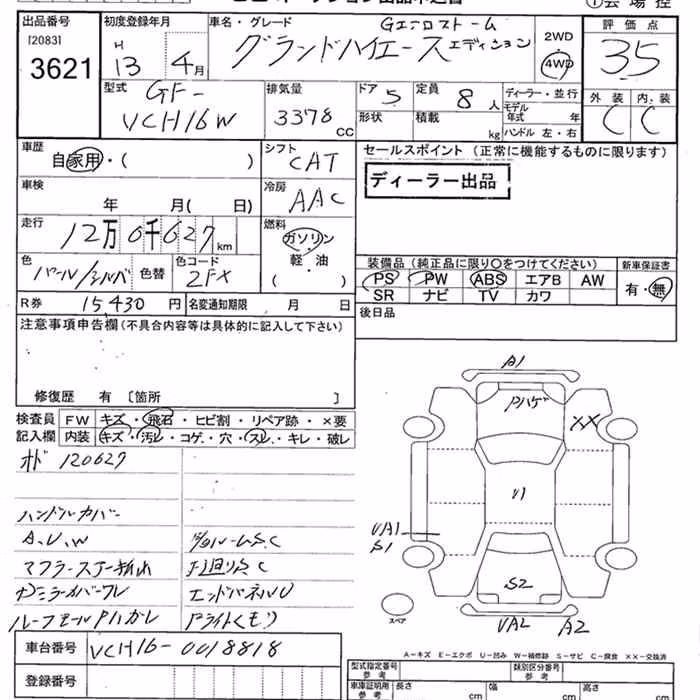 出品番号 [2083] 3621
初度登録年月 H 13 4月
車名・グレード グランドハイエース Gエアロストーム エディション
2WD 4WD
評価点 3.5
型式 GF- VCH16W
排気量 3378 CC
ドア 5 定員 8 人
形状 積載 kg
ディーラー・並行
モデル年式 年
ハンドル 左・右
外装 内装
C C
車歴 自家用・( )
シフト CAT
セールスポイント (正常に機能するものに限ります)
ディーラー出品
車検 年 月( 日)
冷房 AAC
走行 12万0千627km
燃料 ガソリン・軽・油 ( )
色 パール/シルバ 色替 色コード 2FX
装備品 (純正品に限り○をつけてください) 新車保証書
PS PW ABS エアB AW 有・無
SR ナビ TV カワ
R券 15430円 名変通知期限 月 日
後日品
注意事項申告欄(不具合内容等は具体的に記入して下さい)
修復歴 有 〔箇所 〕
検査員 FW キズ・飛石・ヒビ割・リペア跡・×要
記入欄 内装 キズ・汚レ・コゲ・穴・スレ・キレ・破レ
オド 120627
ハンドルカバー
A.U.W
マフラーステー折れ
ルーフモールPハガレ
下廻りS.C
エンドパネルU
Fライトくもり
A1
Pハゲ
XX
U1
UA1
S1
S2
UA2 A2
スペア
A−キズ E−エクボ U−凹み W−補修跡 S−サビ C−腐食 ××−交換済
車台番号 VCH16-0018818
登録番号
型式指定番号 参考 類別区分番号 参考
車庫証明用 参考 長さ cm 幅 cm 高さ cm